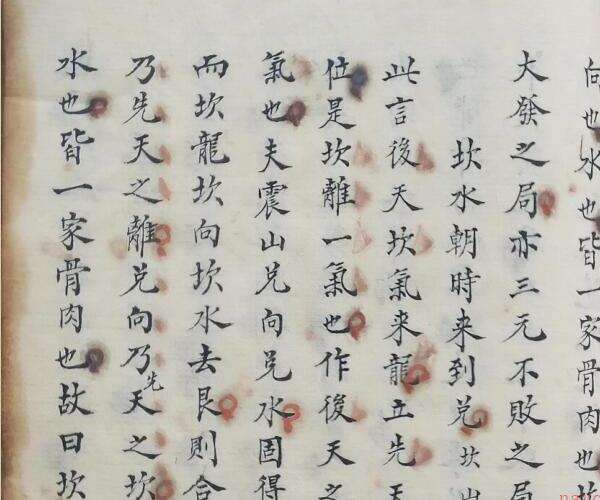 向也水也皆一家骨肉也
大發之局亦三元不敗之局
坎水朝時来到兑坎山
此言後天坎氣来龍立先天
位是坎離一氣也作後天之
氣也夫震山兑向兑水固得
而坎龍坎向坎水去艮則合
乃先天之離兑向乃先天之坎
水也皆一家骨肉也故曰坎